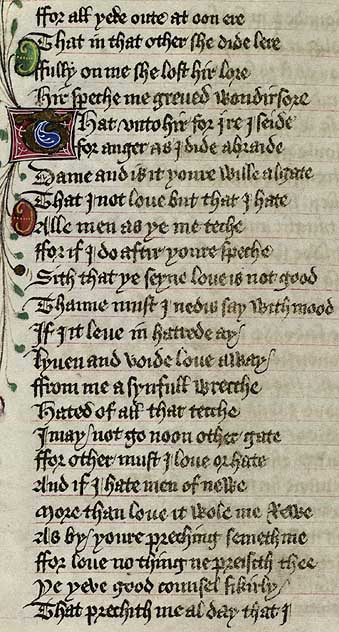 ffor all yede oute at oon ere
That in that other she dide lere
ffully on me she lost hir lore
Hir speche me greued wondir sore
That vnto hir for ire I seide
for anger as I dide abraide
Dame and is it youre wille algate
That I not loue but that I hate
Alle men as ye me teche
ffor if I do aftir youre speche
Sith that ye seyne loue is not good
Thanne must I nedis say with mood
If I it leue in hatrede ay
Lyuen and voide loue away
ffrom me a synfull wrecche
Hated of all that tecche
I may not go noon other gate
ffor other must I loue or hate
And if I hate men of newe
More than loue it wole me rewe
As by youre preching semeth me
ffor loue no thing ne preisith thee
Ye yeve good counsel sikirly
That prechith me al day that I